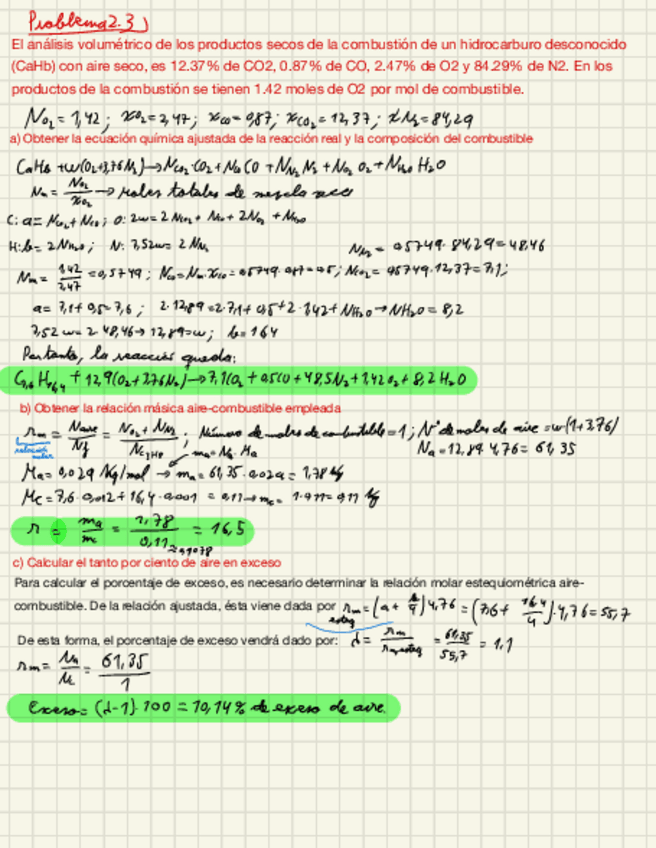 Problema 2.3)
El análisis volumétrico de los productos secos de la combustión de un hidrocarburo desconocido
(CaHb) con aire seco, es 12.37% de CO2, 0.87% de CO, 2.47% de O2 y 84.29% de N2. En los
productos de la combustión se tienen 1.42 moles de O2 por mol de combustible.
N_O2 = 1,42 ; x_O2 = 2,47 ; x_CO = 0,87 ; x_CO2 = 12,37 ; x_N2 = 84,29
a) Obtener la ecuación química ajustada de la reacción real y la composición del combustible
CaHb + w(O2+3,76N2) → N_CO2·CO2 + N_CO CO + N_N2 N2 + N_O2 O2 + N_H2O H2O
N_m = N_O2/x_O2 → moles totales de mezcla seca
C: a = N_CO2 + N_CO ; O: 2w = 2N_CO2 + N_CO + 2N_O2 + N_H2O
H: b = 2N_H2O ; N: 7,52w = 2N_N2 N_N2 = 0,5749·84,29 = 48,46
N_m = 1,42/2,47 = 0,5749 ; N_CO = N_m·x_CO = 0,5749·0,87 = 0,5 ; N_CO2 = 0,5749·12,37 = 7,1 ;
a = 7,1 + 0,5 = 7,6 ; 2·12,89 = 2·7,1 + 0,5 + 2·1,42 + N_H2O → N_H2O = 8,2
7,52w = 2·48,46 → 12,89 = w ; b = 16,4
Por tanto, la reacción queda:
C7,6 H16,4 + 12,9(O2+3,76N2) → 7,1CO2 + 0,5CO + 48,5N2 + 1,42O2 + 8,2H2O
b) Obtener la relación másica aire-combustible empleada
r_m = N_aire/N_f = N_O2+N_N2/N_C7H8 ; Número de moles de combustible = 1 ; Nº de moles de aire = w(1+3,76)
relación molar m_a = N_a·M_a N_a = 12,89·4,76 = 61,35
M_a = 0,029 Kg/mol → m_a = 61,35·0,029 = 1,78 kg
M_c = 7,6·0,012 + 16,4·0,001 = 0,11 → m_c = 1·0,11 = 0,11 kg
r = m_a/m_c = 1,78/0,11 = 16,5
≈0,1078
c) Calcular el tanto por ciento de aire en exceso
Para calcular el porcentaje de exceso, es necesario determinar la relación molar estequiométrica aire-
combustible. De la relación ajustada, ésta viene dada por r_m esteq = (a + b/4)4,76 = (7,6 + 16,4/4)·4,76 = 55,7
De esta forma, el porcentaje de exceso vendrá dado por: λ = r_m/r_m,esteq = 61,35/55,7 = 1,1
r_m = N_a/N_c = 61,35/1
Exceso = (λ-1)·100 = 10,14% de exceso de aire.